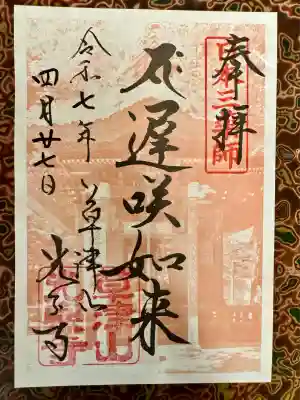 奉拝
日本三薬師
遲咲如来
令和七年
四月廿七日
草津山
光泉寺
草津山
光泉寺